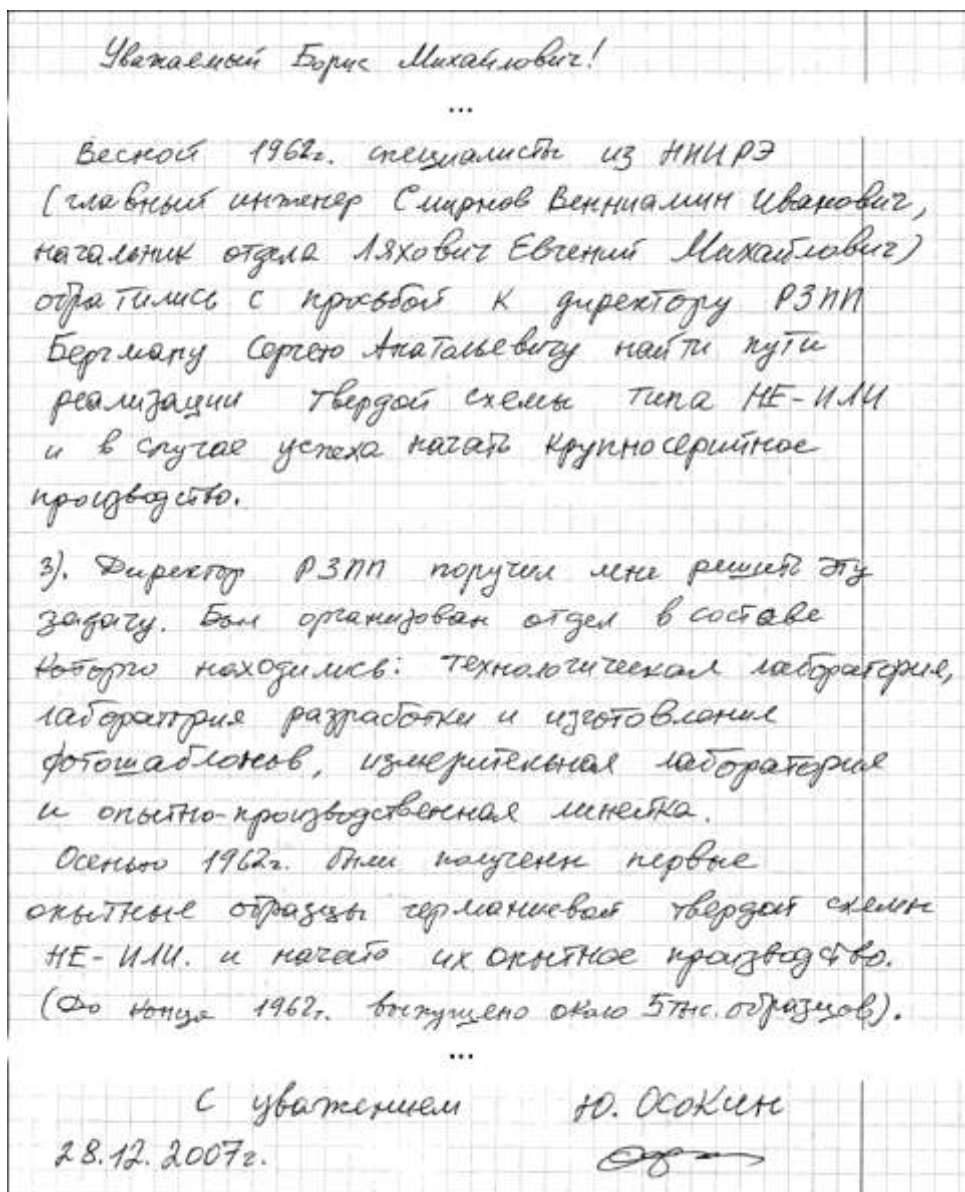 Уважаемый Борис Михайлович!
...
Весной 1962г. специалисты из НИИРЭ
(главный инженер Смирнов Венниамин Иванович,
начальник отдела Ляхович Евгений Михайлович)
обратились с просьбой к директору РЗПП
Бергману Сергею Анатольевичу найти пути
реализации твердой схемы типа НЕ-ИЛИ
и в случае успеха начать крупносерийное
производство.
3). Директор РЗПП поручил мне решить эту
задачу. Был организован отдел в составе
которго находились: технологическая лаборатория,
лаборатория разработки и изготовления
фотошаблонов, измерительная лаборатория
и опытно-производственная линейка.
Осенью 1962г. были получены первые
опытные образцы германиевой твердой схемы
НЕ-ИЛИ. и начато их опытное производство.
(До конца 1962г. выпущено около 5тыс. образцов).
...
С уважением Ю. Осокин
28.12.2007г.